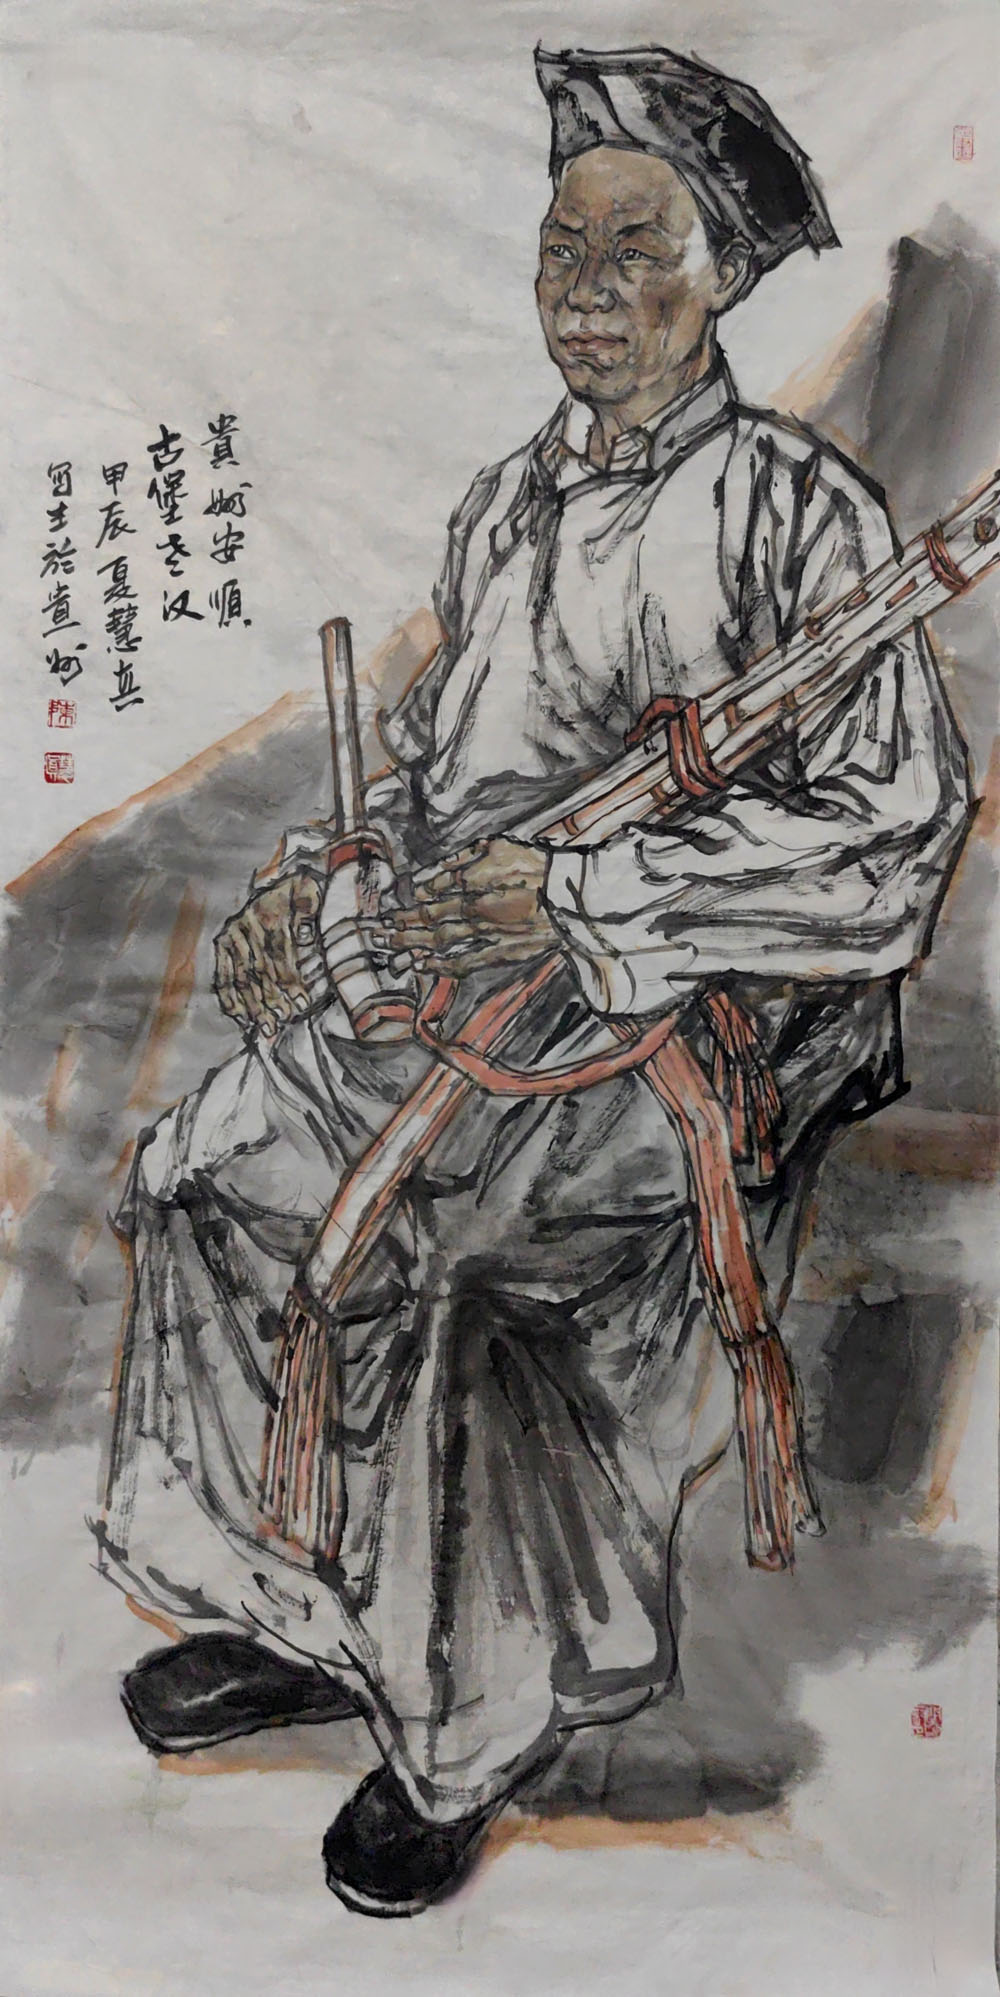 貴州安順
古堡老汉
甲辰夏慧真
写生於貴州
陳